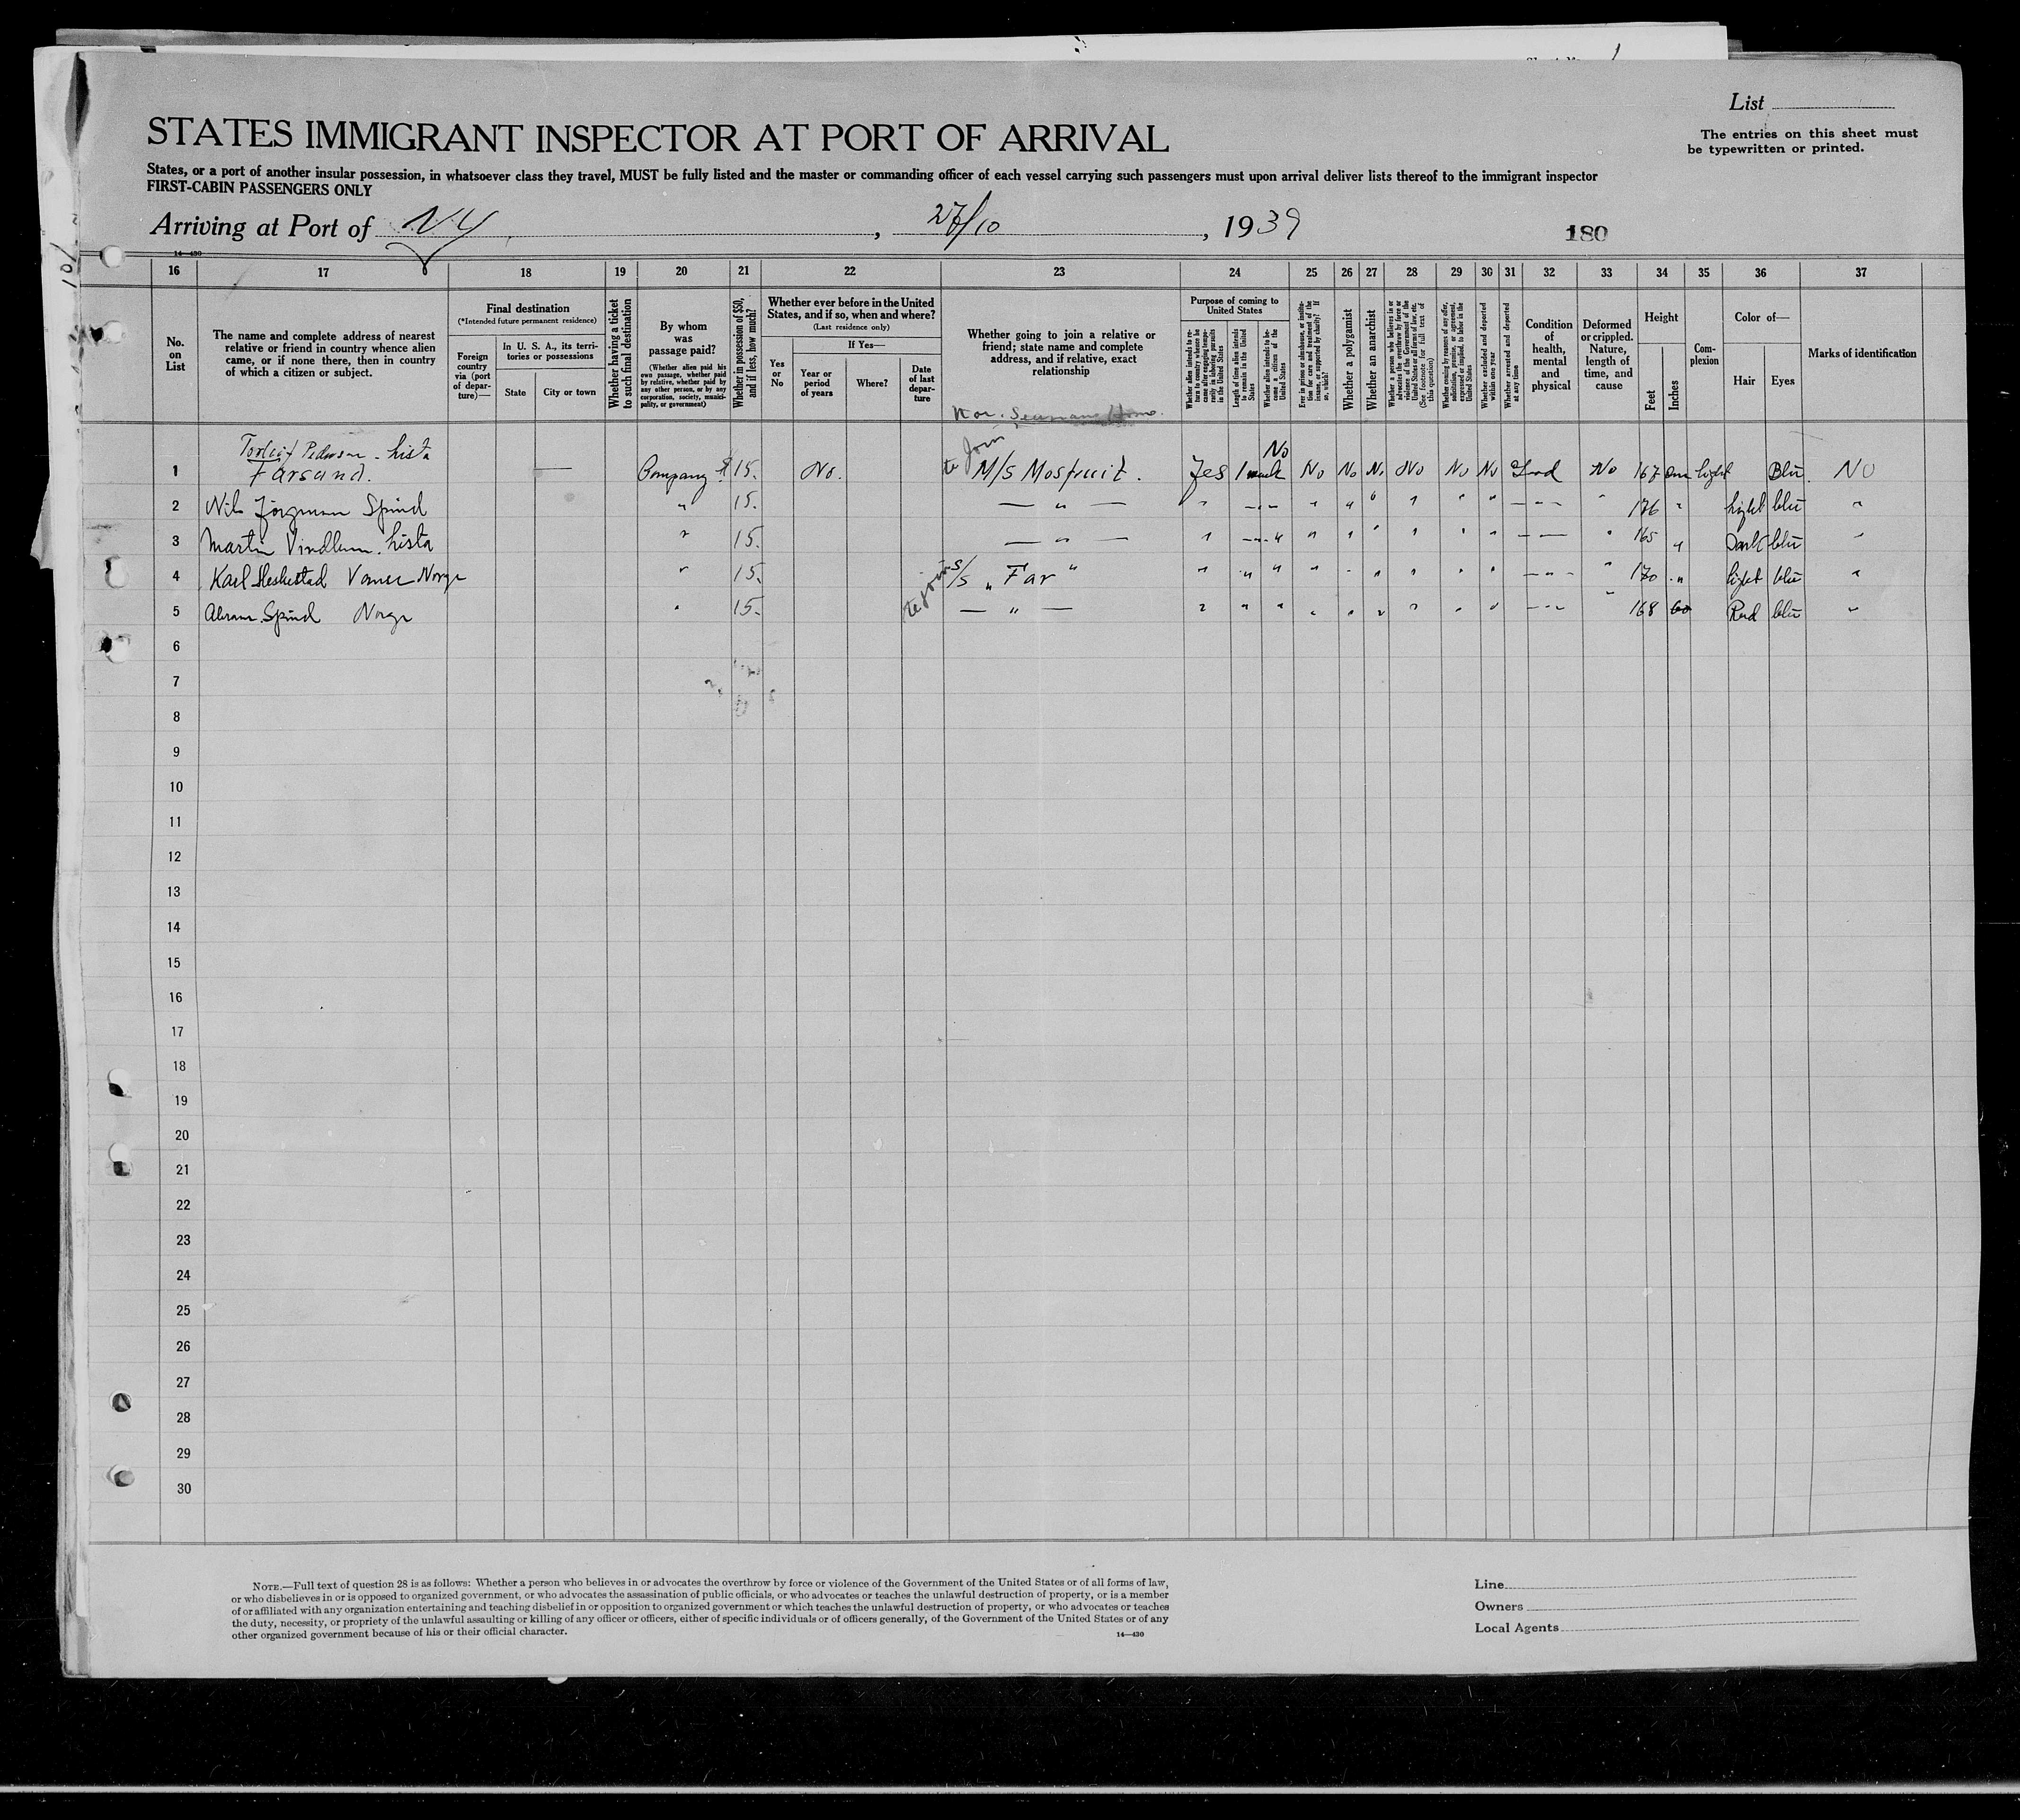 List
STATES IMMIGRANT INSPECTOR AT PORT OF ARRIVAL
The entries on this sheet must
be typewritten or printed.
States, or a port of another insular possession, in whatsoever class they travel, MUST be fully listed and the master or commanding officer of each vessel carrying such passengers must upon arrival deliver lists thereof to the immigrant inspector
FIRST-CABIN PASSENGERS ONLY
Arriving at Port of NY, 27/10, 1939
180
14—430
16 17 18 19 20 21 22 23 24 25 26 27 28 29 30 31 32 33 34 35 36 37
No. on List
The name and complete address of nearest relative or friend in country whence alien came, or if none there, then in country of which a citizen or subject.
Final destination
(*Intended future permanent residence)
Foreign country via (port of departure)—
In U. S. A., its territories or possessions
State
City or town
Whether having a ticket to such final destination
By whom was passage paid?
(Whether alien paid his own passage, whether paid by relative, whether paid by any other person, or by any corporation, society, municipality, or government)
Whether in possession of $50, and if less, how much?
Whether ever before in the United States, and if so, when and where?
(Last residence only)
Yes or No
If Yes—
Year or period of years
Where?
Date of last departure
Whether going to join a relative or friend; state name and complete address, and if relative, exact relationship
Nor. Seamans Home.
Purpose of coming to United States
Whether alien intends to return to country whence he came after engaging temporarily in laboring pursuits in the United States
Length of time alien intends to remain in the United States
Whether alien intends to become a citizen of the United States
Ever in prison or almshouse, or institution for care and treatment of the insane, or supported by charity? If so, which?
Whether a polygamist
Whether an anarchist
Whether a person who believes in or advocates the overthrow by force or violence of the Government of the United States or all forms of law, etc. (See footnote for full text of this question)
Whether coming by reasons of any offer, solicitation, promise, or agreement, expressed or implied, to labor in the United States
Whether excluded and deported within one year
Whether arrested and deported at any time
Condition of health, mental and physical
Deformed or crippled. Nature, length of time, and cause
Height
Feet
Inches
Complexion
Color of—
Hair
Eyes
Marks of identification
1 Torleif Pedersen - Lista Farsund. — Company $ 15. No. to join M/S Mosfruit. Yes 1 No No No No No No No Good No 167 cm light Blu. NO
2 Nils Jörgensen Spind " 15. — " — " " " " " " " " 176 " light blu "
3 Martin Vindheim. Lista " 15. — " — " " " " " " " " 165 " Dark blu "
4 Karl Heskestad Vanse Norge " 15. to join S/S "Far" " " " " " " " " 170 " light blu "
5 Abram. Spind Norge " 15. — " — " " " " " " " " 168 Red blu "
6
7
8
9
10
11
12
13
14
15
16
17
18
19
20
21
22
23
24
25
26
27
28
29
30
NOTE.—Full text of question 28 is as follows: Whether a person who believes in or advocates the overthrow by force or violence of the Government of the United States or of all forms of law,
or who disbelieves in or is opposed to organized government, or who advocates the assassination of public officials, or who advocates or teaches the unlawful destruction of property, or is a member
of or affiliated with any organization entertaining and teaching disbelief in or opposition to organized government or which teaches the unlawful destruction of property, or who advocates or teaches
the duty, necessity, or propriety of the unlawful assaulting or killing of any officer or officers, either of specific individuals or of officers generally, of the Government of the United States or of any
other organized government because of his or their official character.
14—430
Line
Owners
Local Agents